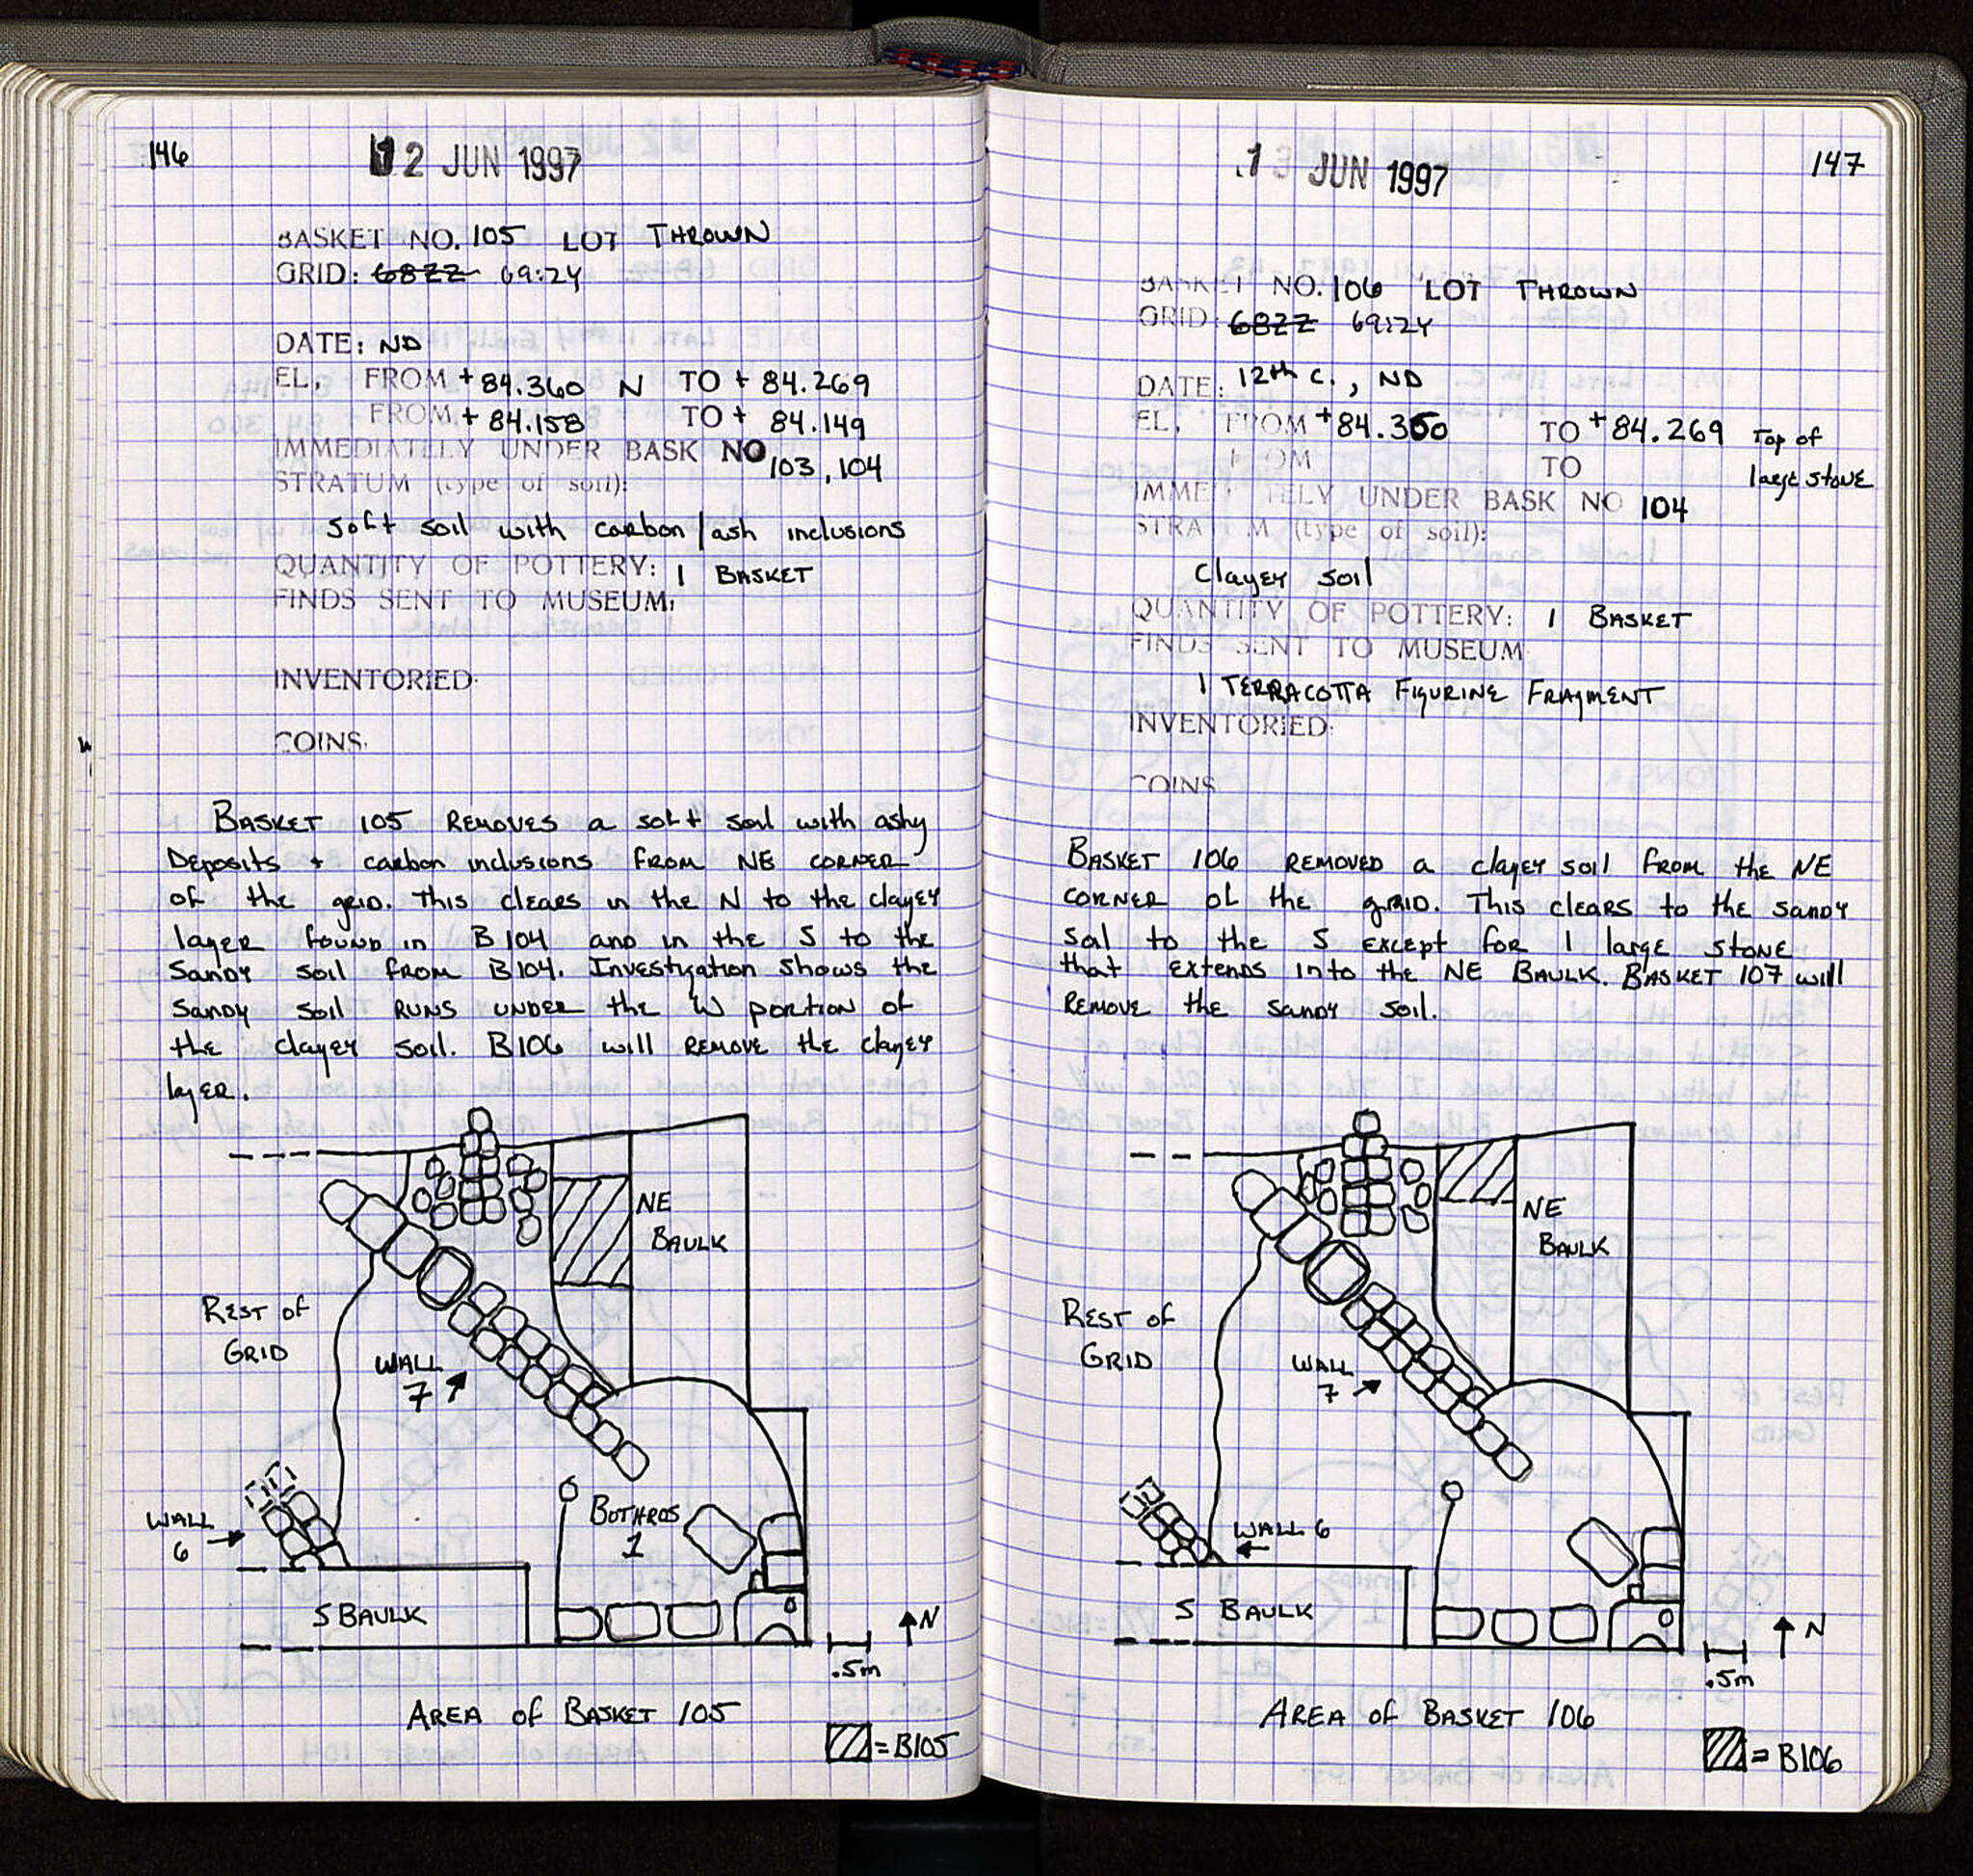 146
12 JUN 1997
BASKET NO. 105 LOT THROWN
GRID: 68ZZ 69:24
DATE: ND
EL, FROM + 84.360 N TO + 84.269
FROM + 84.158 TO + 84.149
IMMEDIATELY UNDER BASK NO 103, 104
STRATUM (type of soil):
Soft soil with carbon/ash inclusions
QUANTITY OF POTTERY: 1 BASKET
FINDS SENT TO MUSEUM:
INVENTORIED:
COINS:
BASKET 105 REMOVES a soft soil with ashy
Deposits + carbon inclusions FROM NE CORNER
of the grid. This clears in the N to the clayey
layer found in B104 and in the S to the
Sandy soil from B104. Investigation shows the
sandy soil RUNS UNDER the W portion of
the clayey soil. B106 will REMOVE the clayey
layer.
NE
BAULK
REST of
GRID
WALL
7
WALL
6
BOTHROS
1
S BAULK
N
.5m
AREA of BASKET 105
= B105
13 JUN 1997
147
BASKET NO. 106 LOT THROWN
GRID: 68ZZ 69:24
DATE: 12th C., ND
EL, FROM + 84.350 TO + 84.269 Top of
FROM TO large stone
IMMEDIATELY UNDER BASK NO 104
STRATUM (type of soil):
Clayey soil
QUANTITY OF POTTERY: 1 BASKET
FINDS SENT TO MUSEUM
1 TERRACOTTA FIGURINE FRAGMENT
INVENTORIED:
COINS
BASKET 106 REMOVED a clayey soil from the NE
CORNER of the grid. This clears to the sandy
soil to the S except for 1 large stone
that extends into the NE BAULK. BASKET 107 will
REMOVE the sandy soil.
NE
BAULK
REST of
GRID
WALL
7
WALL 6
S BAULK
N
.5m
AREA of BASKET 106
= B106